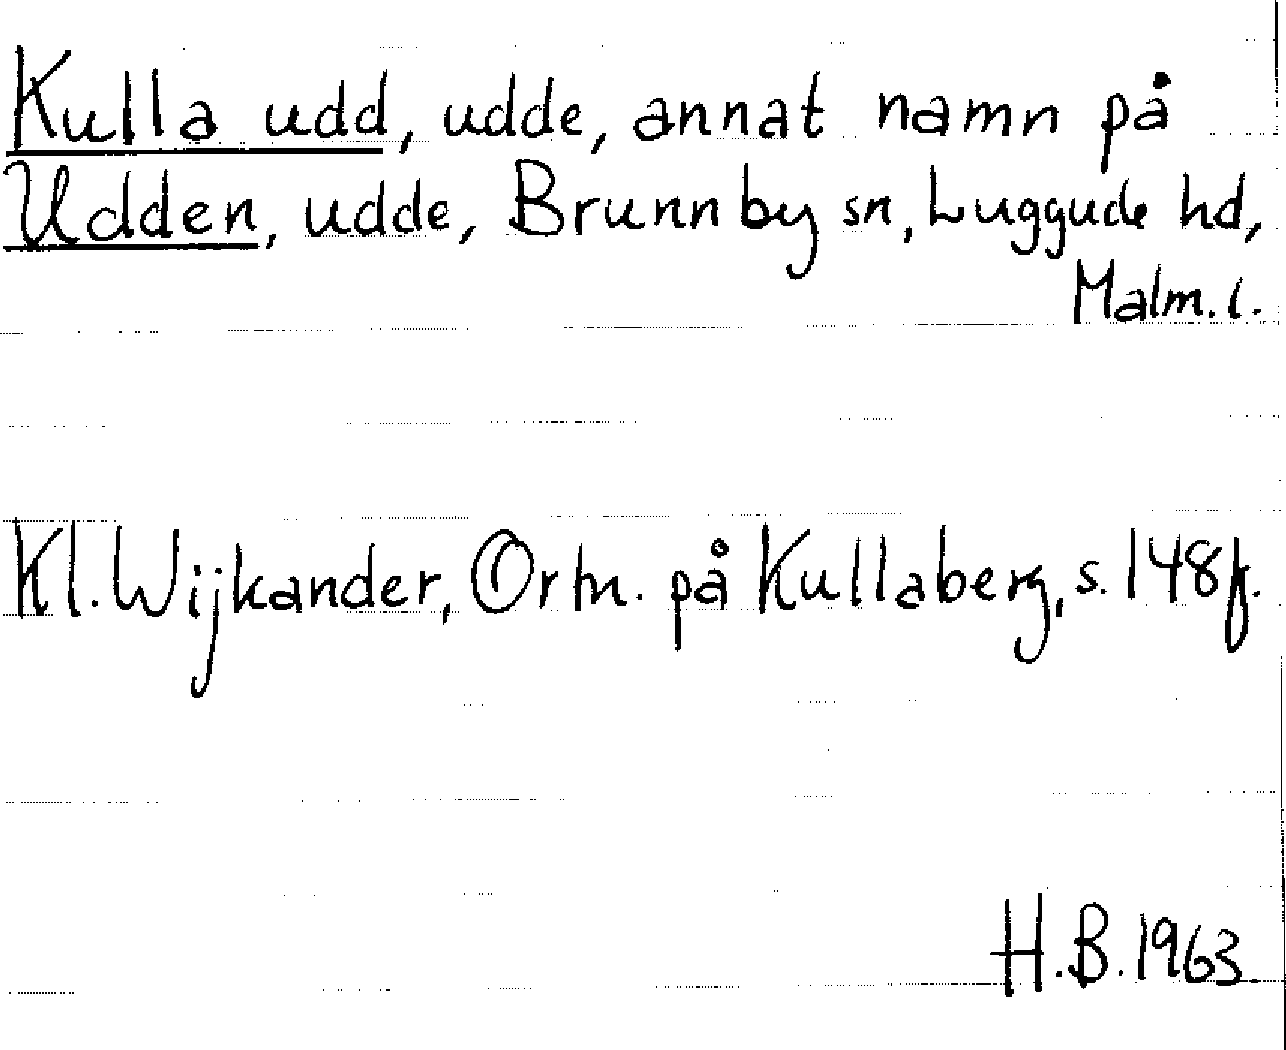 Kulla udd, udde, annat namn på
Udden, udde, Brunnby sn, Luggude hd,
Malm. l.
Kl. Wijkander, Ortn. på Kullaberg, s. 148f.
H.B. 1963